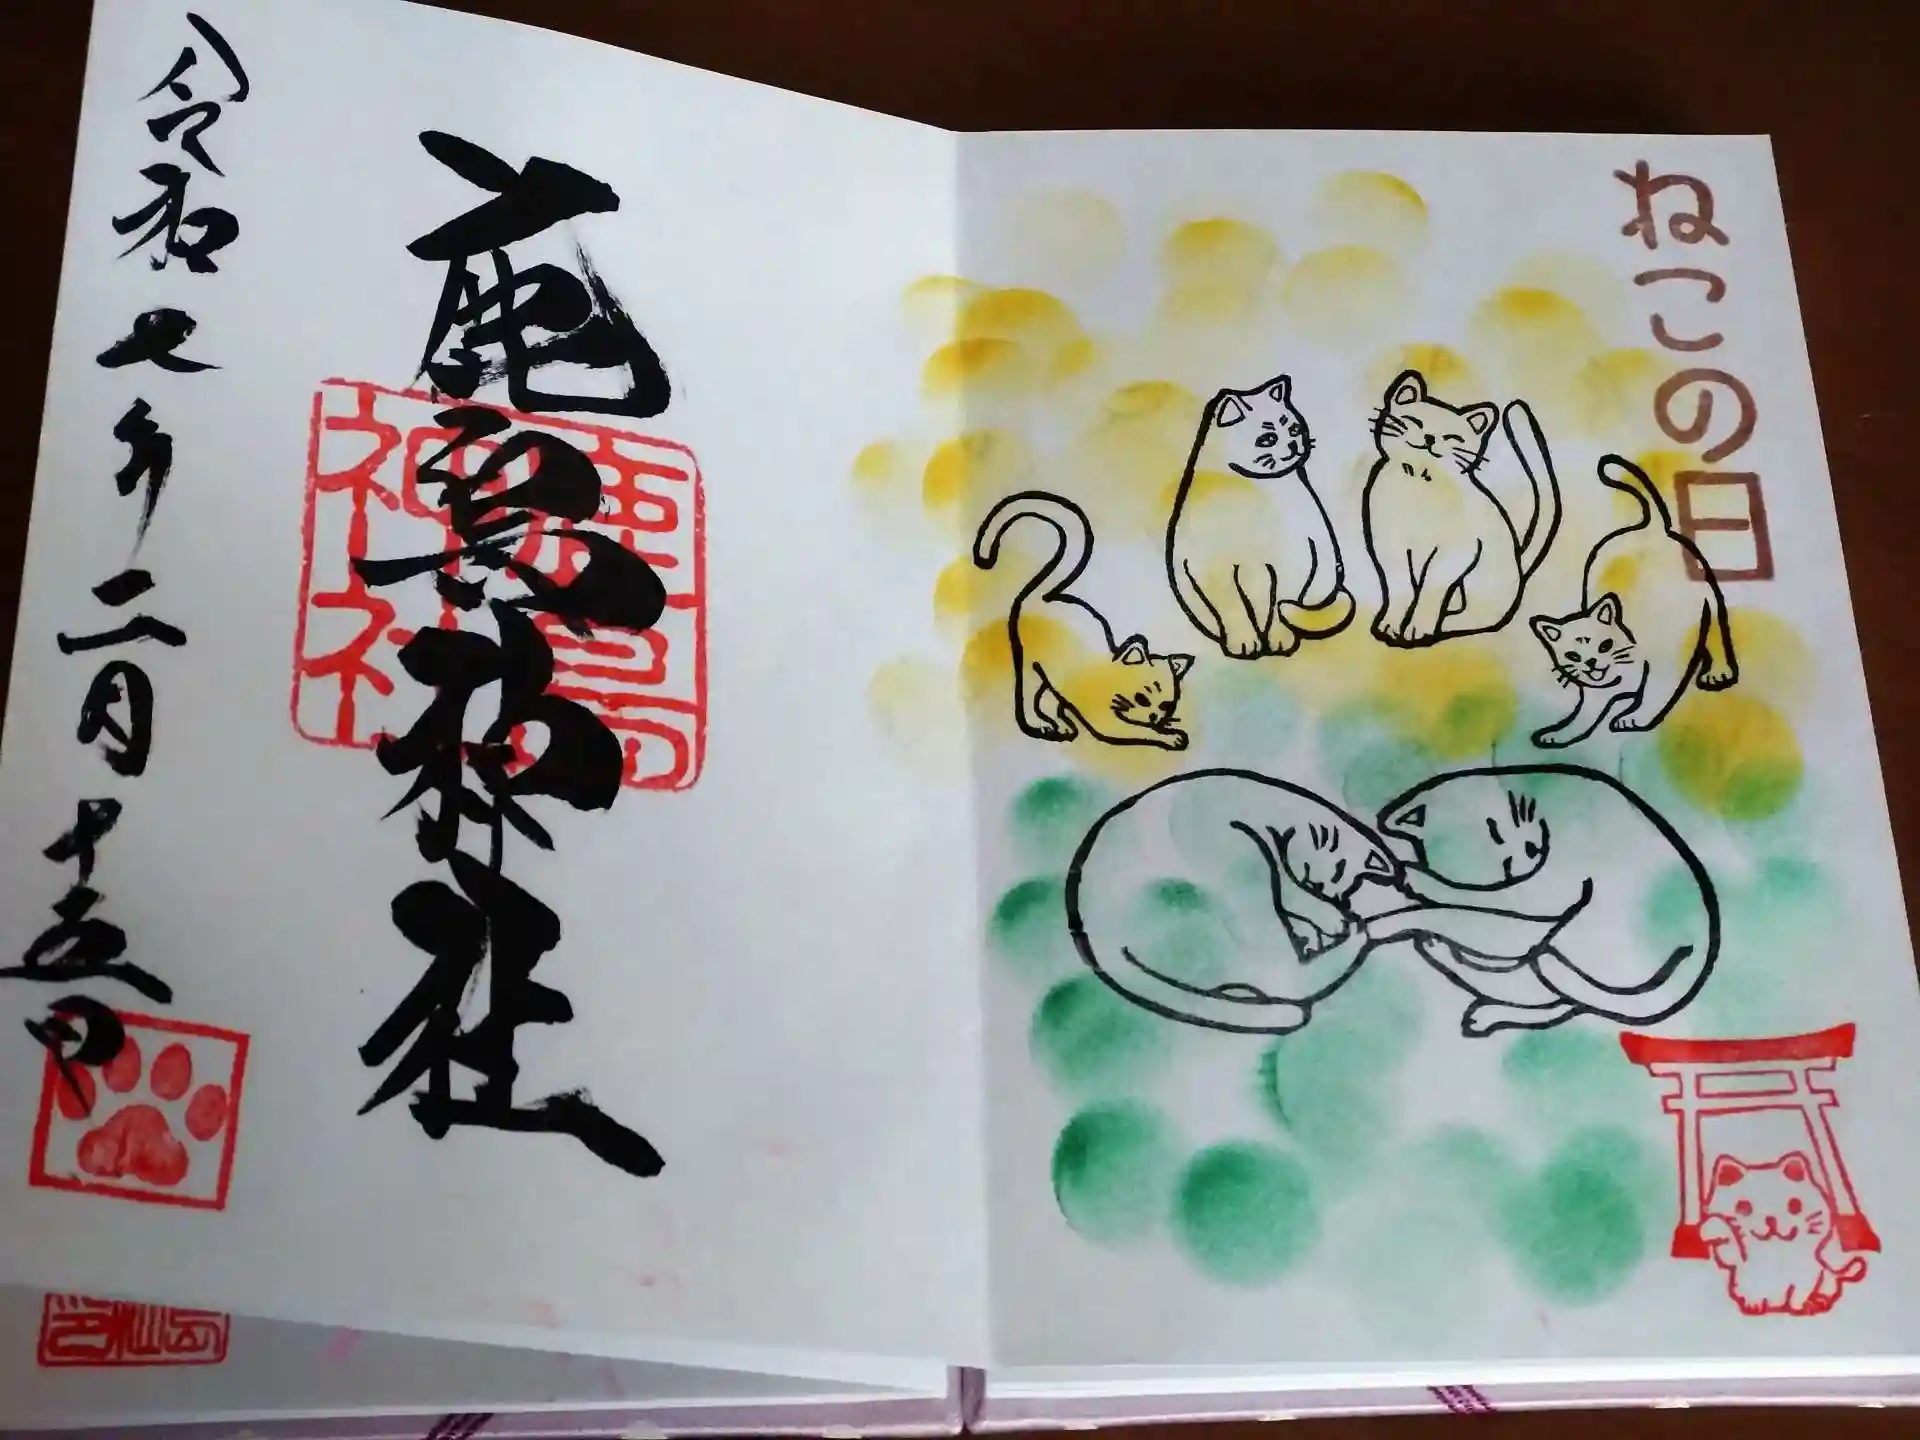 ねこの日
鹿島神社
鹿島
神社
令和七年二月十五日